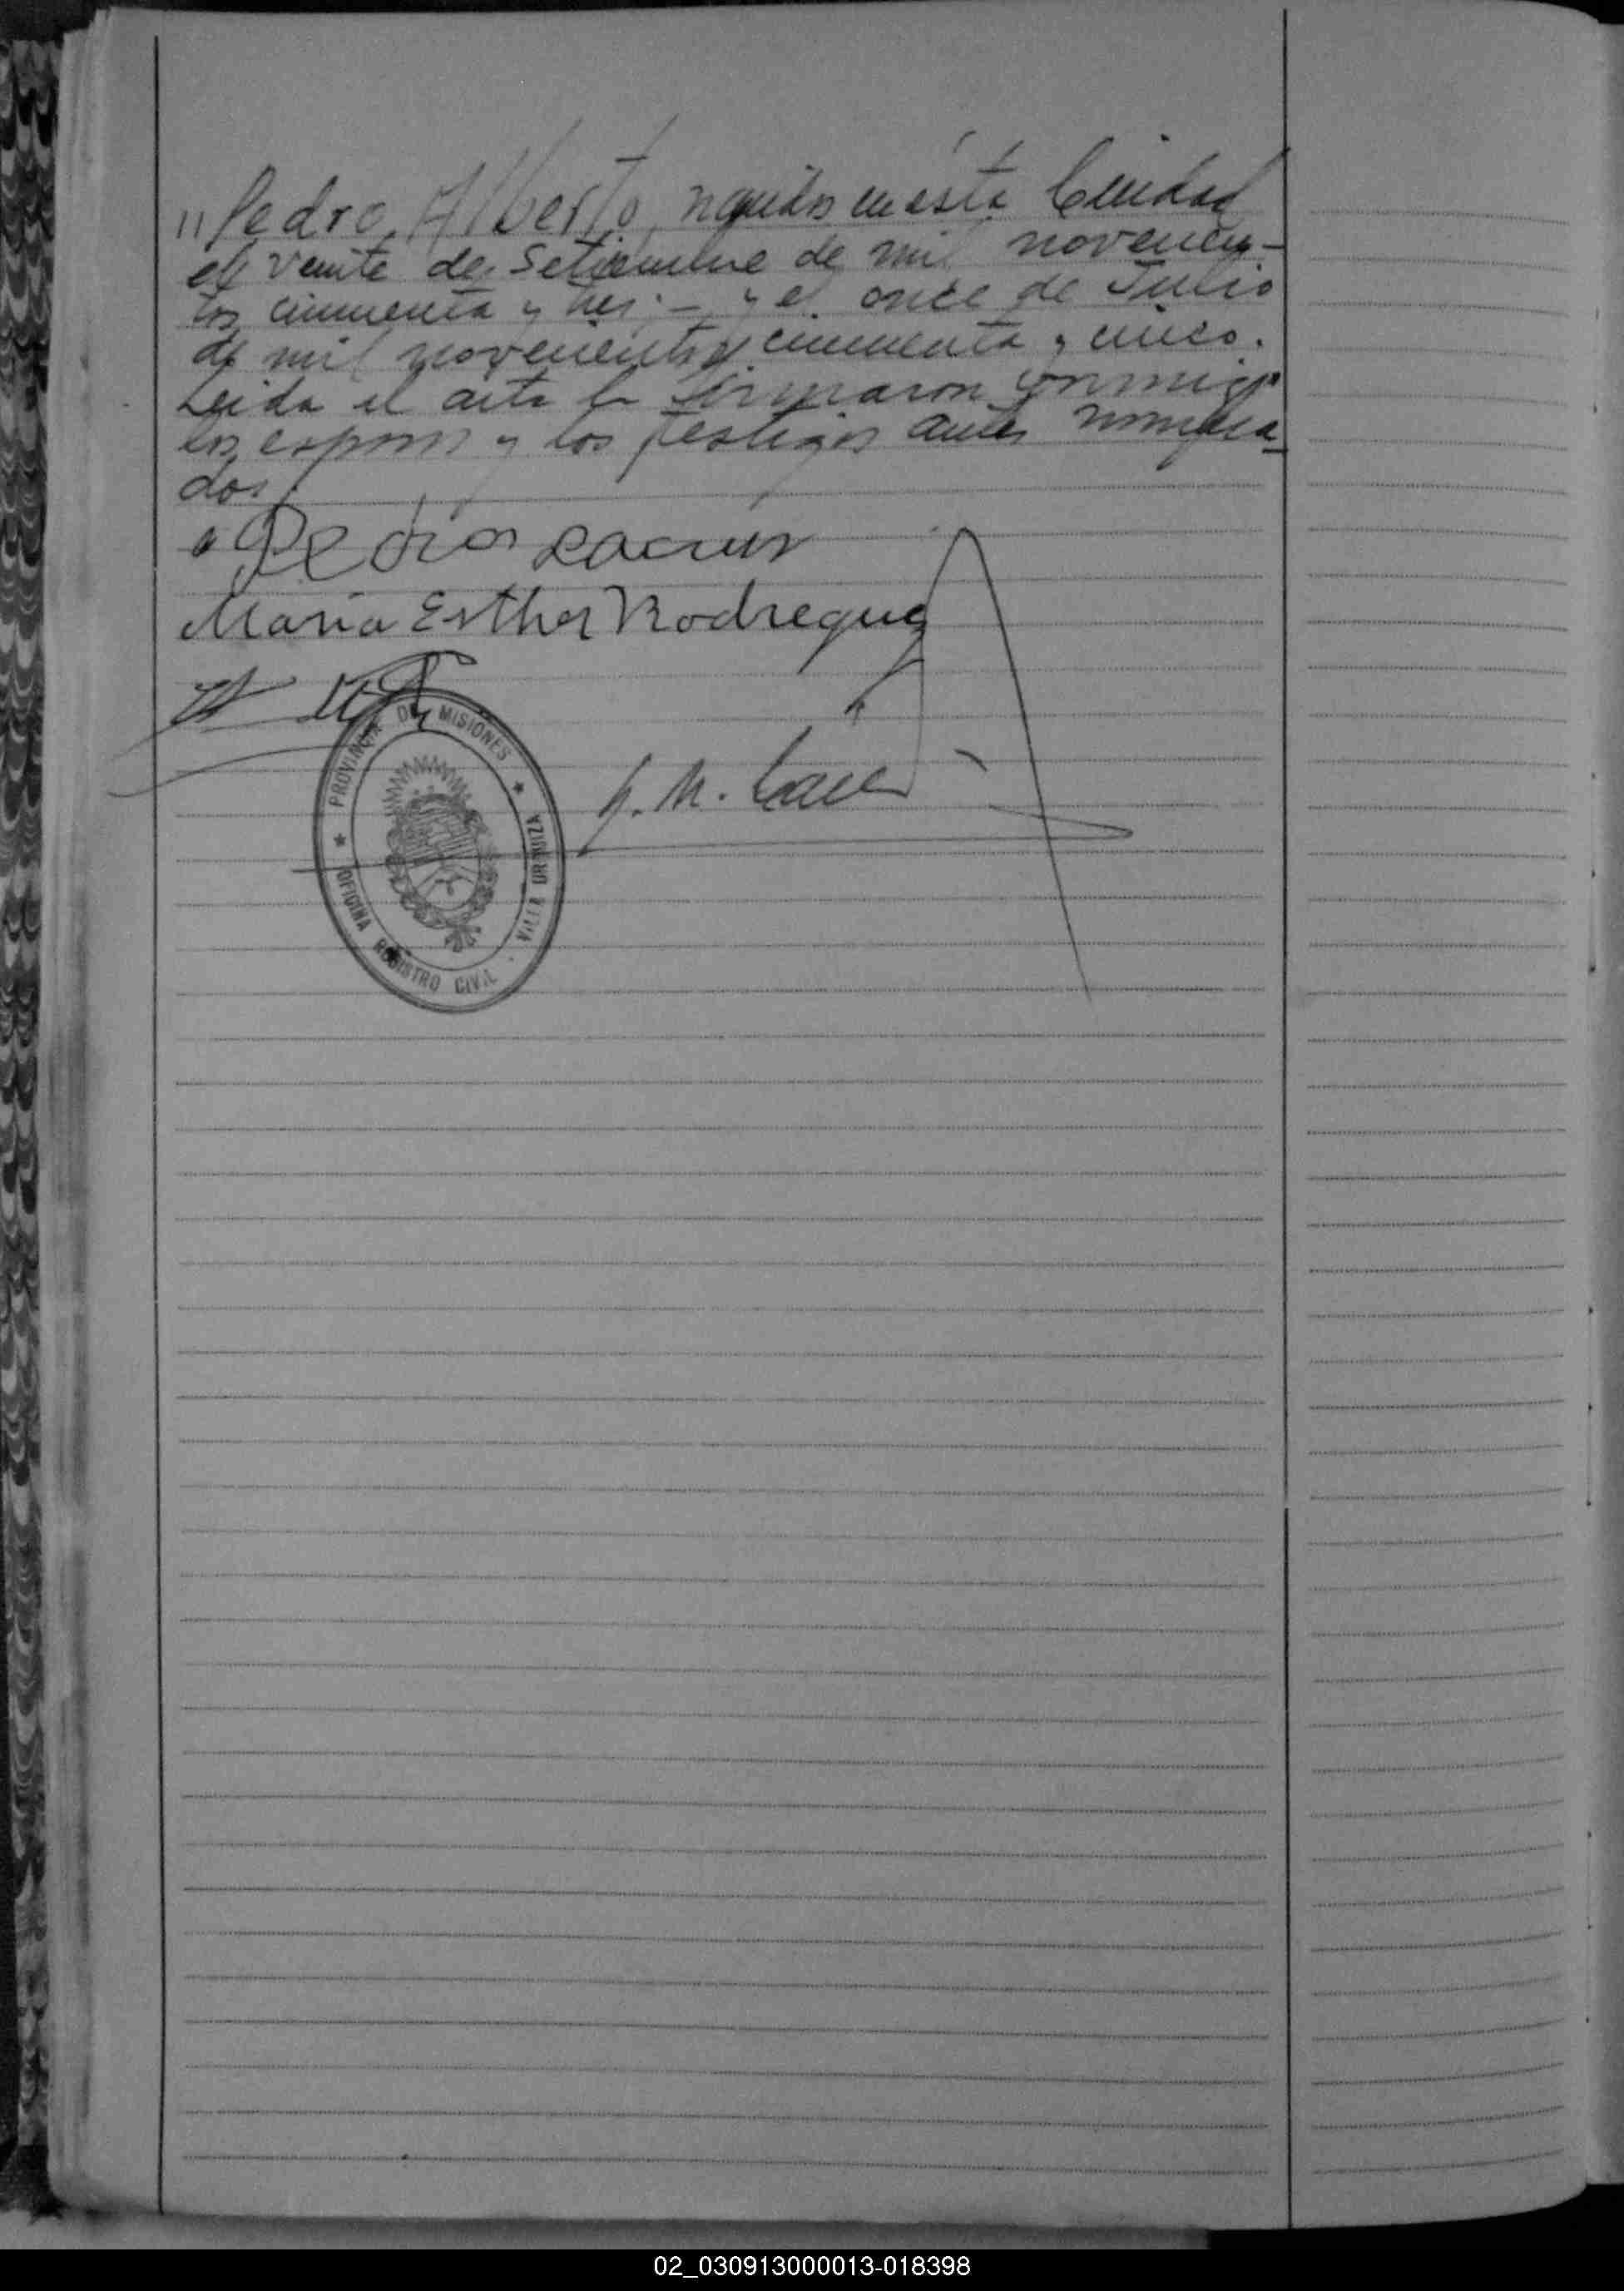 "Pedro Alberto, nacidos en ésta Ciudad
el veinte de Setiembre de mil novecien-
tos cincuenta y tres; - y el once de Julio
de mil novecientos cincuenta y cinco.
Leida el acta la firmaron conmigo
los esposos y los testigos antes nombra-
dos.
Pedro
Maria Esther Rodreguez
PROVINCIA DE MISIONES
OFICINA REGISTRO CIVIL - VILLA URQUIZA
02_030913000013-018398